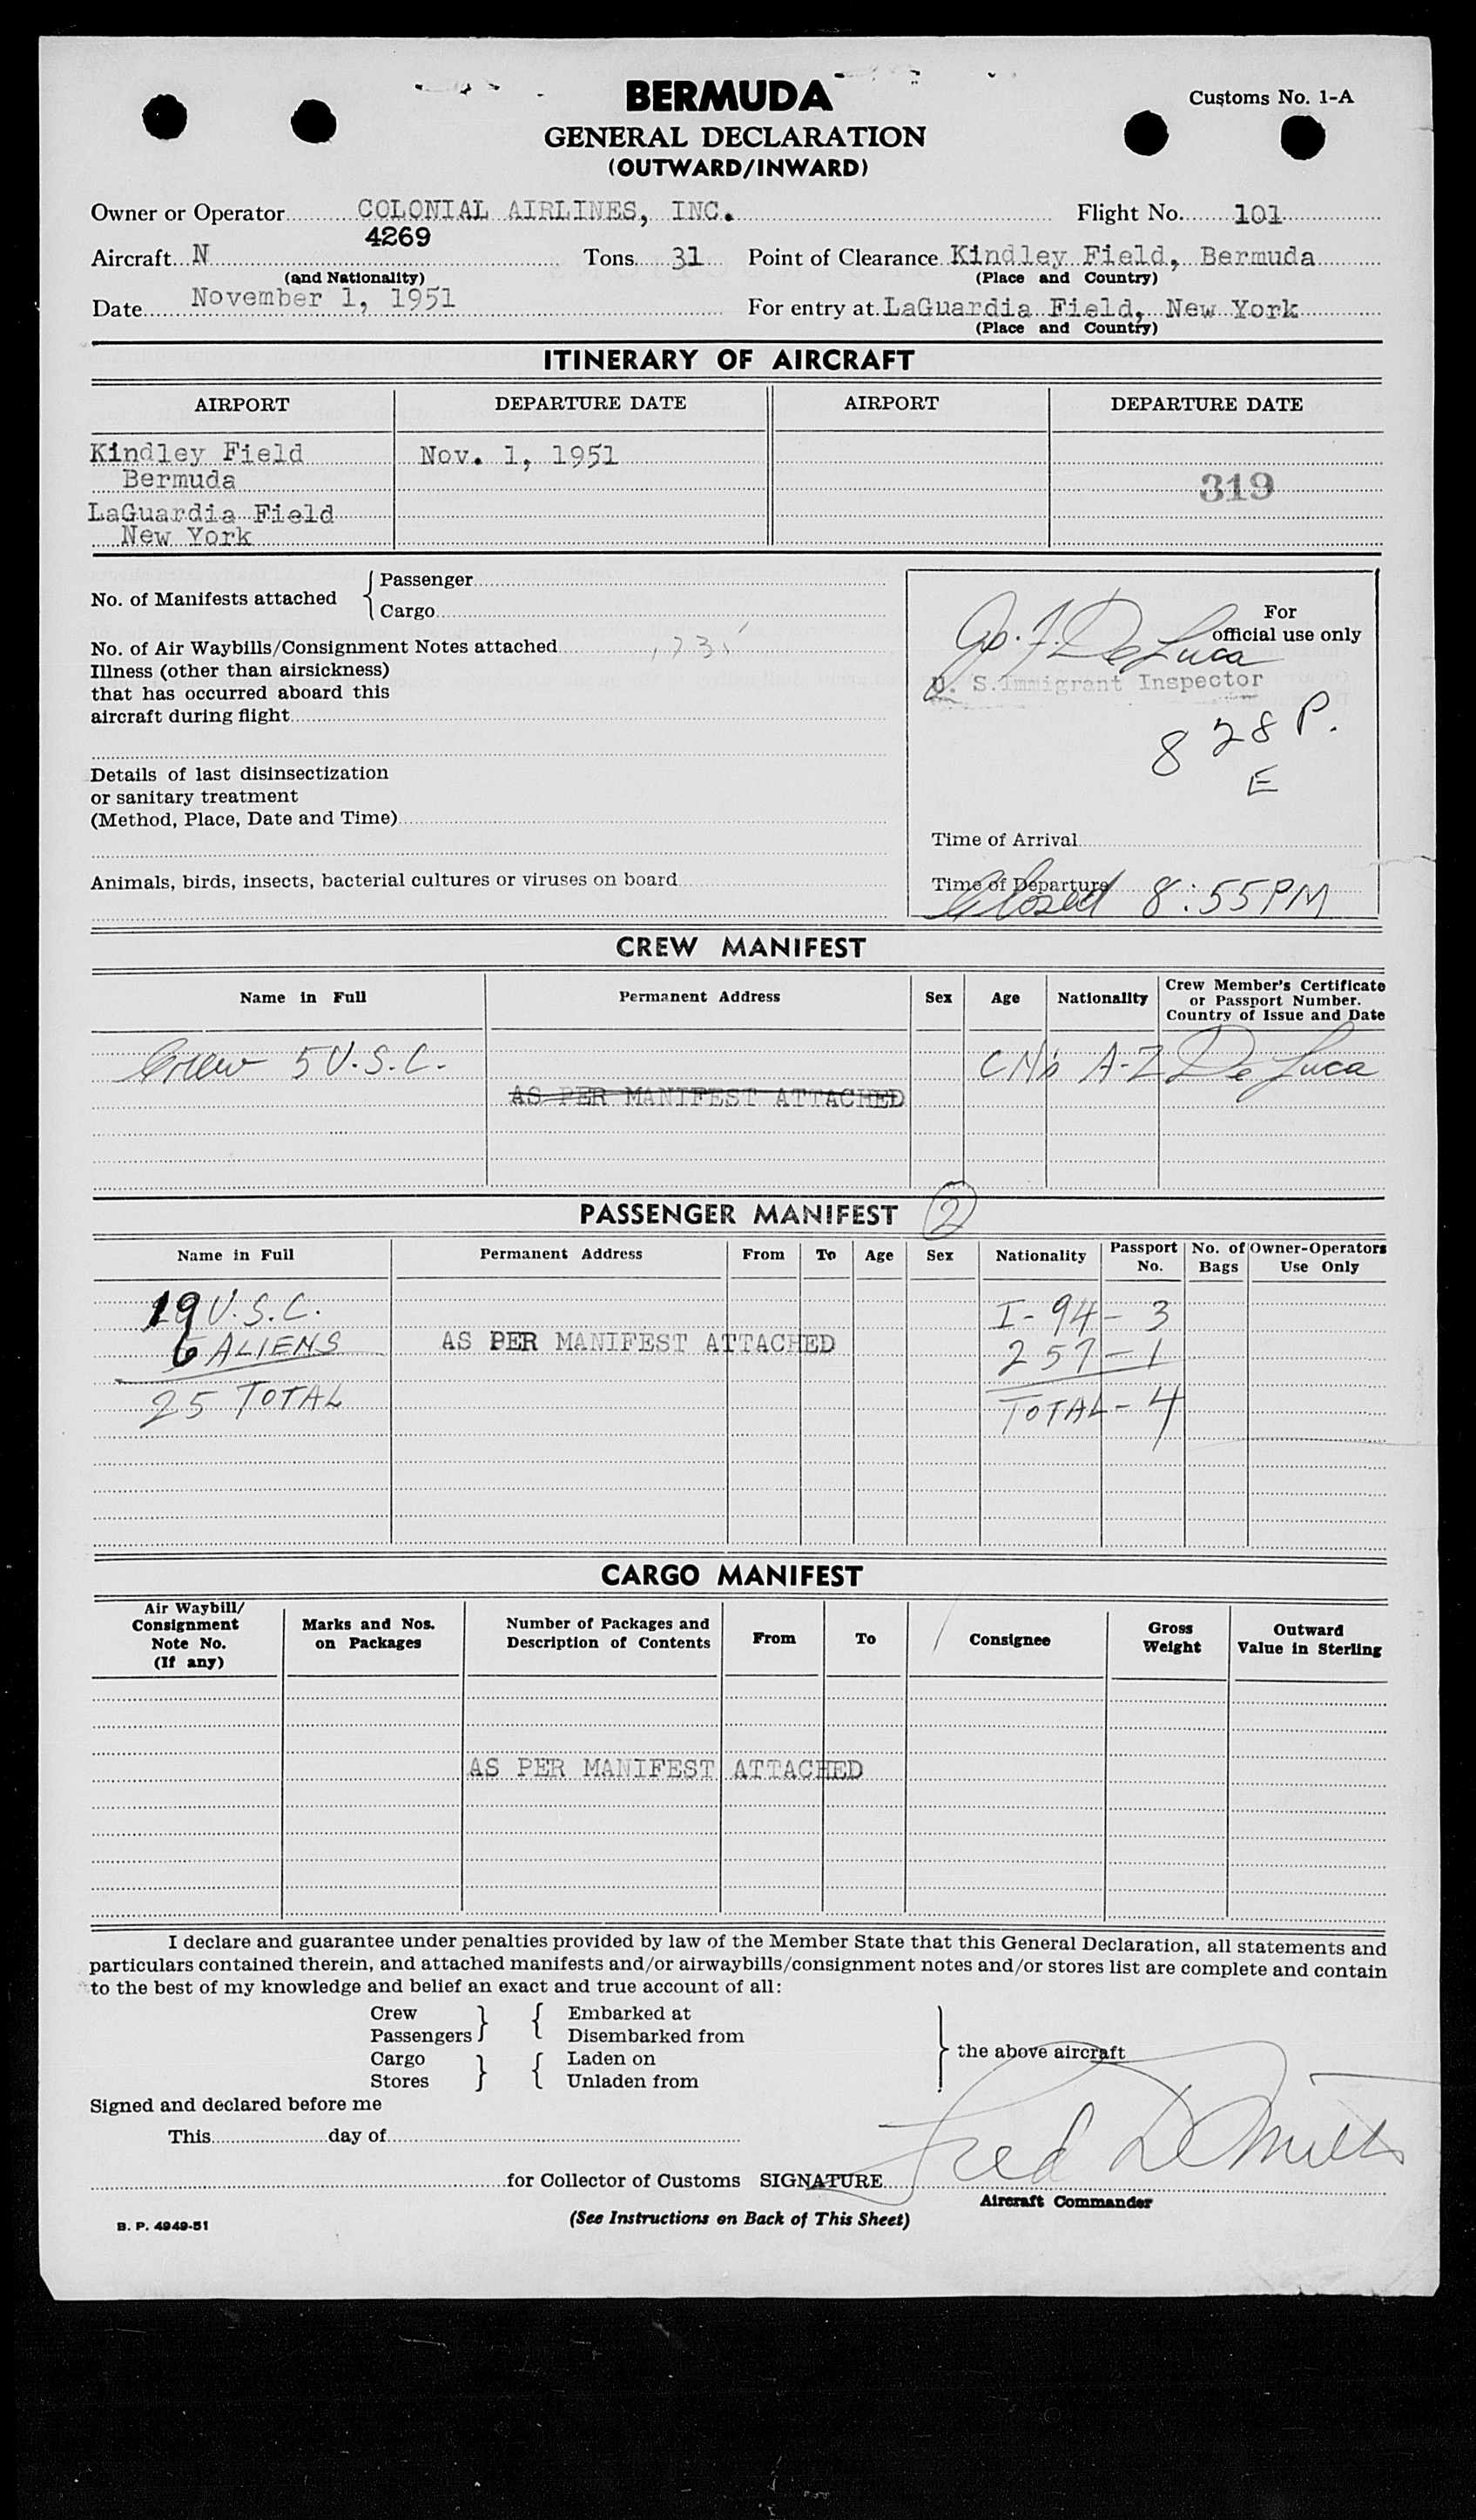 BERMUDA
Customs No. 1-A
GENERAL DECLARATION
(OUTWARD/INWARD)
Owner or Operator COLONIAL AIRLINES, INC. Flight No. 101
4269
Aircraft N Tons 31 Point of Clearance Kindley Field, Bermuda
(and Nationality) (Place and Country)
Date November 1, 1951 For entry at LaGuardia Field, New York
(Place and Country)
ITINERARY OF AIRCRAFT
AIRPORT DEPARTURE DATE AIRPORT DEPARTURE DATE
Kindley Field Nov. 1, 1951
Bermuda 319
LaGuardia Field
New York
No. of Manifests attached { Passenger
Cargo
For
official use only
Jos. F. De Luca
U. S. Immigrant Inspector
No. of Air Waybills/Consignment Notes attached
Illness (other than airsickness)
that has occurred aboard this
aircraft during flight
8 28 P.
E
Details of last disinsectization
or sanitary treatment
(Method, Place, Date and Time)
Time of Arrival
Animals, birds, insects, bacterial cultures or viruses on board
Time of Departure
Closed 8:55 PM
CREW MANIFEST
Name in Full Permanent Address Sex Age Nationality Crew Member's Certificate
or Passport Number.
Country of Issue and Date
Crew 5 U.S.C. A-Z De Luca
AS PER MANIFEST ATTACHED
PASSENGER MANIFEST 2
Name in Full Permanent Address From To Age Sex Nationality Passport No. No. of Bags Owner-Operators Use Only
19 U.S.C. I-94 - 3
6 ALIENS AS PER MANIFEST ATTACHED 257 - 1
25 TOTAL TOTAL - 4
CARGO MANIFEST
Air Waybill/
Consignment
Note No.
(If any)
Marks and Nos.
on Packages
Number of Packages and
Description of Contents
From To Consignee
Gross
Weight
Outward
Value in Sterling
AS PER MANIFEST ATTACHED
I declare and guarantee under penalties provided by law of the Member State that this General Declaration, all statements and
particulars contained therein, and attached manifests and/or airwaybills/consignment notes and/or stores list are complete and contain
to the best of my knowledge and belief an exact and true account of all:
Crew } { Embarked at
Passengers Disembarked from
} the above aircraft
Cargo } { Laden on
Stores Unladen from
Signed and declared before me
This day of
for Collector of Customs SIGNATURE Fred
Aircraft Commander
(See Instructions on Back of This Sheet)
B. P. 4949-51